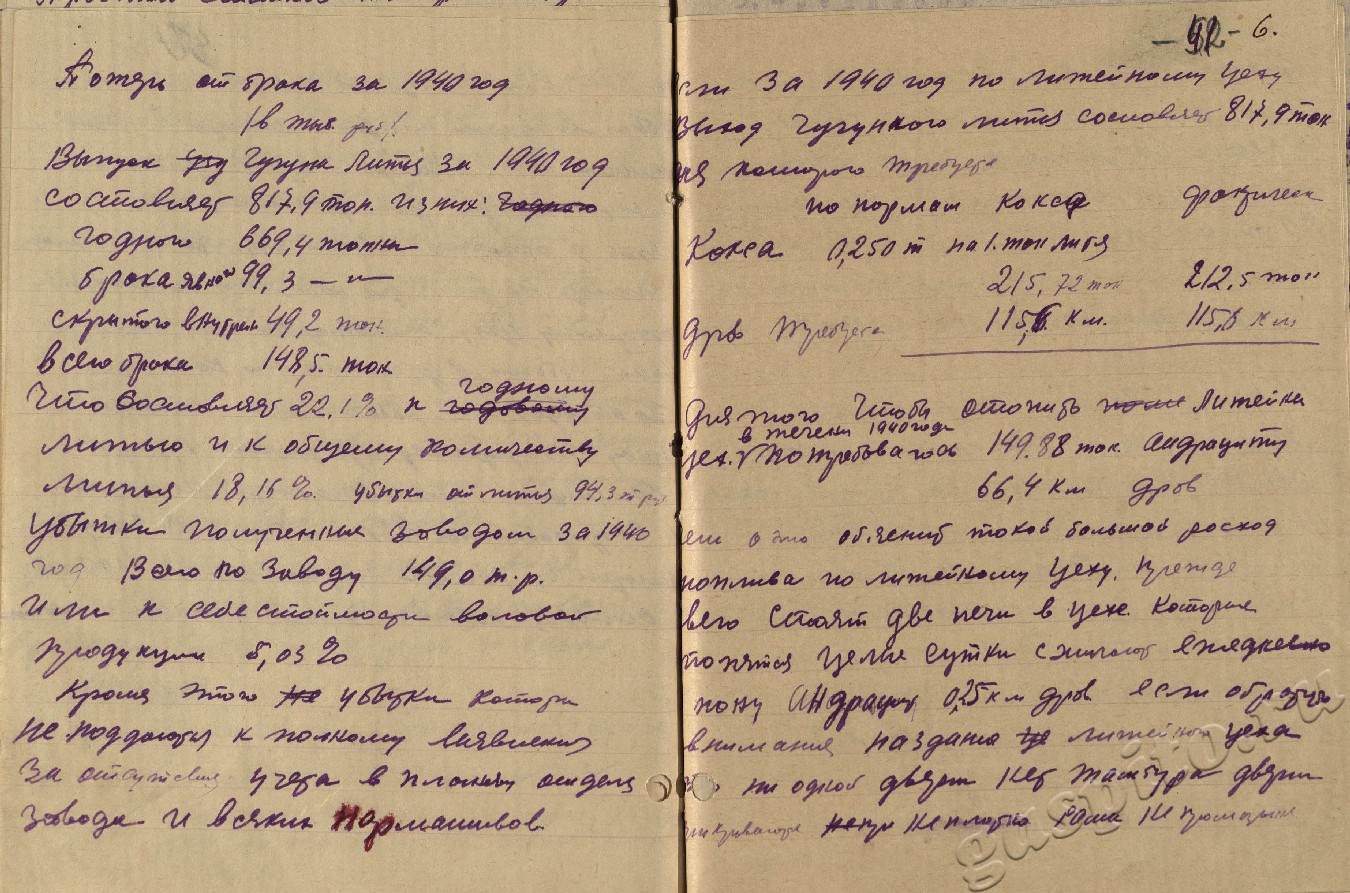 Потерь от брака за 1940 год
/в тыс. руб/.
Выпуск чугуна Литя за 1940 год
состовляет 817,9 тон. из них:
годного 669,4 тонны
брака явного 99,3 — " —
скрытого внутрен 49,2 тон.
всего брака 148,5 тон
Что Состовляет 22,1% к годному
литью и к общему количеству
Литья 18,16%. убытки от литья 94,3 т руб
Убытки полученные заводом за 1940
год Всего по заводу 149,0 т.р.
Или к себестоймости воловой
продукции 5,03%
Кроме этого убытки которы
не поддаются к полному выявлению
За отсутствие учета в плановом отделе
завода и всяких нормативов
- 42 - 6.
сли За 1940 год по литейному цеху
Выход Чугунного лития состовляет 817,9 тон
ля которого требуется
по нормам Кокса фактическ
Кокса 0,250 т на 1. тон литя
215,72 тон 212,5 тон
дров требуется 115,6 км. 115,6 км
Для того Чтобы отопить Литейки
в течени 1940 года
цех. V Потребовалось 149.88 тон. Андрациту
66,4 км дров
объяснит такой большой росход
топлива по литейному Цеху. Прежде
всего Стоят две печи в цехе. Которые
топятся Целые Сутки сжигают ежедневно
тону Андрациту 0,25 км дров если обратить
внимания на здания литейного цеха
ни одной двери нет тамбура двери
закриваются не плотно Рамы не промазаны
guspiton.ru